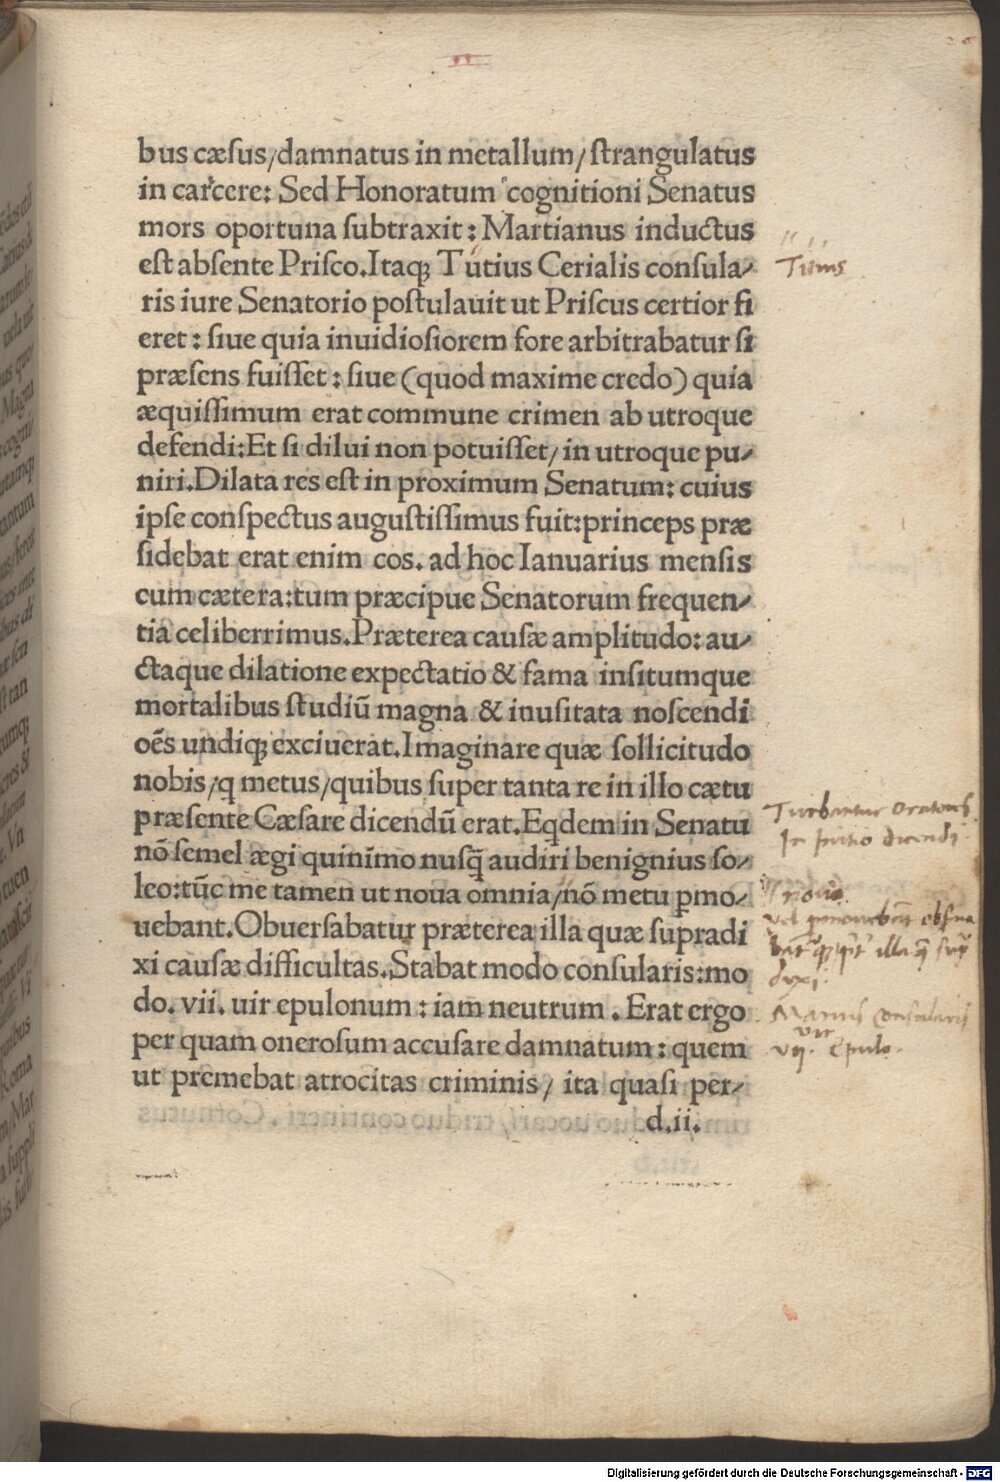 bus cæsus/damnatus in metallum/strangulatus
in carcere: Sed Honoratum cognitioni Senatus
mors oportuna subtraxit: Martianus inductus
est absente Prisco. Itaqꝫ Tutius Cerialis consula-
ris iure Senatorio postulauit ut Priscus certior fi
eret: siue quia inuidiosiorem fore arbitrabatur si
præsens fuisset: siue (quod maxime credo) quia
æquissimum erat commune crimen ab utroque
defendi: Et si dilui non potuisset/in utroque pu-
niri. Dilata res est in proximum Senatum: cuius
ipse conspectus augustissimus fuit: princeps præ
sidebat erat enim cos. ad hoc Ianuarius mensis
cum cætera: tum præcipue Senatorum frequen-
tia celiberrimus. Præterea causæ amplitudo: au-
ctaque dilatione expectatio & fama insitumque
mortalibus studiū magna & inusitata noscendi
oēs undiqꝫ exciuerat. Imaginare quæ sollicitudo
nobis/q metus/quibus super tanta re in illo cætu
præsente Cæsare dicendū erat. Eqdem in Senatu
nō semel ægi quinimo nusq̄ audiri benignius so-
leo: tūc me tamen ut noua omnia/nō metu ꝑmo-
uebant. Obuersabatur præterea illa quæ supradi
xi causæ difficultas. Stabat modo consularis: mo
do. vii. uir epulonum: iam neutrum. Erat ergo
per quam onerosum accusare damnatum: quem
ut premebat atrocitas criminis/ ita quasi per-
d.ii.
Titius
Turbantur oratores
In initio dicendi
nouo
dixi
Marius consularis
vir
vij. epulo.
Digitalisierung gefördert durch die Deutsche Forschungsgemeinschaft - DFG